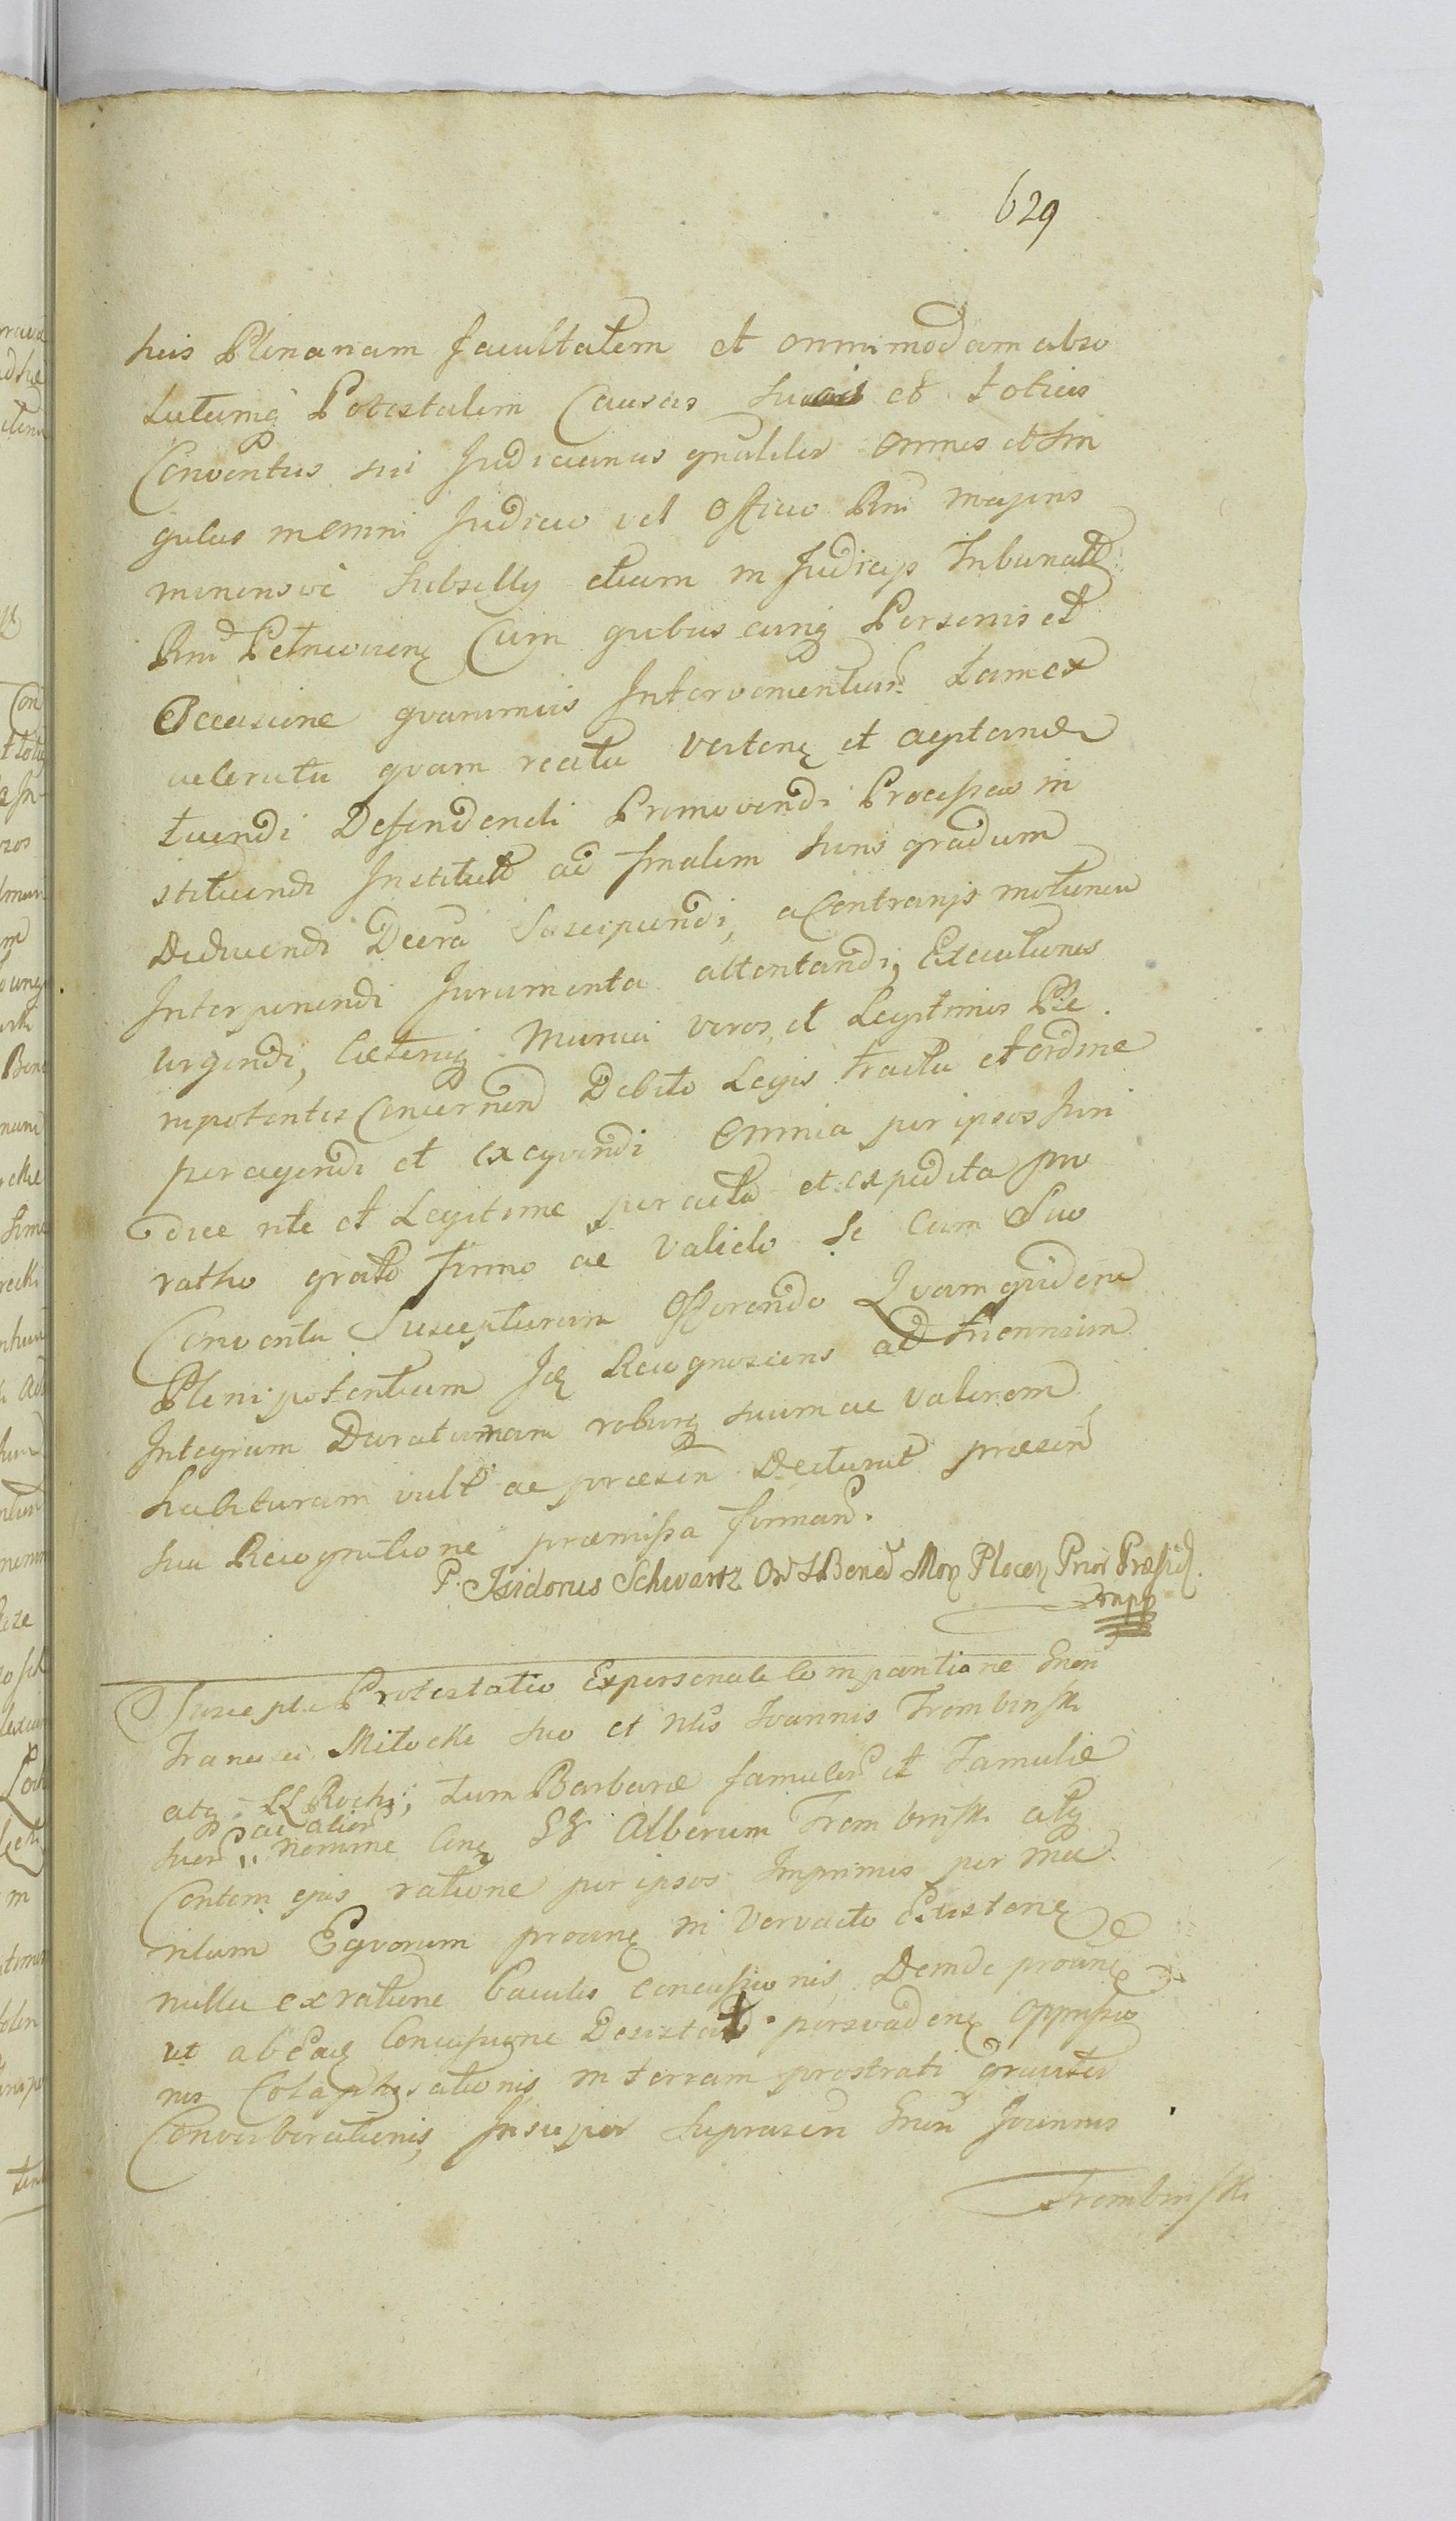 629
suis Plenariam facultatem et omnimodam abso
lutamq Potestatem Causas suas et totius
Conventus sui Judiciarias gnaliter omnes et sin
gulas in omni Judicio vel Officio Rni majoris
minorisve Subsellij etiam in Judicijs Tribunalit
Rni Petricovien Cum quibus cunq Personis et
Occasione quarumvis Intervenientium tam ex
acleratu quam reatu verten et agitandi
tuendi Defendendi Promovendi Processus in
stituendi Institut ad finalem Juris gradum
Deducendi Decra Suscipiendi, a Contrarijs motiones
Interponendi Juramenta attentandi, Executiones
urgendi, Caeteraq Munia veros et Legitimos Ple
nipotentes Concernen Debito Legis tractu et ordine
peragendi et exequendi Omnia per ipsos Juri
dice rite et Legitime peracta et expedita pro
ratho grato firmo ac valido se Cum Suo
Conventu Suscepturum Offerendo Quam quidem
Plenipotentiam Idq Recognoscens ad triennium
Integrum Duraturam roburq suum ac valorem
habituram vult ac praesen Declarat praesen
sua Recognitione praemissa firman.
P. Isidorus Schwartz Ord S Bened Mon Plocen Prior Praesid.
mpp
Suscepta Protestatio Ex personali Comparitione Gnen
Francisci Milocki suo et Nlis Joannis Trembinski
atq LL Rochi, tum Barbarae famulor et Famulae
ac alior
suor nomine Con GG Albertum Trembinski atq
Contem ejus ratione per ipsos Imprimis per me
ritum Equorum proane in Vervacto Existen
nulla ex ratione baculis concussionis, Deinde proane
ut ab eaq Concussione Desistat persvaden Oppressio
nis Colaphisationis in terram prostrati graviter
Converberationis, Insuper suprascri Gnen Joannis
Trembinski